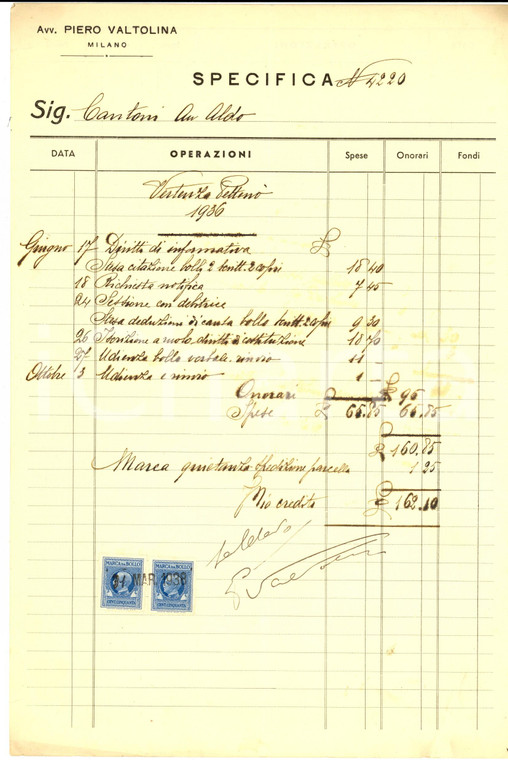 Avv. PIERO VALTOLINA
MILANO
SPECIFICA N 4220
Sig. Cantoni Avv Aldo
DATA OPERAZIONI Spese Onorari Fondi
Vertenza Pettinò
1936
Giugno 17 Diritto di informativa £
Stesa citazione bollo 2 scritt. 2 copie 18 40
18 Richiesta notifica 7 45
24 Sessione con debitrice
Stesa deduzioni di causa bollo scritt. 2 copie 9 30
26 Iscrizione a ruolo diritto costituzione 18 70
27 Udienza bollo verbale rinvio 11 -
Ottobre 3 Udienza e rinvio 1 -
Onorari £ 95
Spese £ 65.85 65.85
£ 160.85
Marca quietanza spedizione parcella 1 25
Mio credito £ 162.10
Saldato
P Valtolina
MARCA DA BOLLO MARCA DA BOLLO
31 MAR. 1938